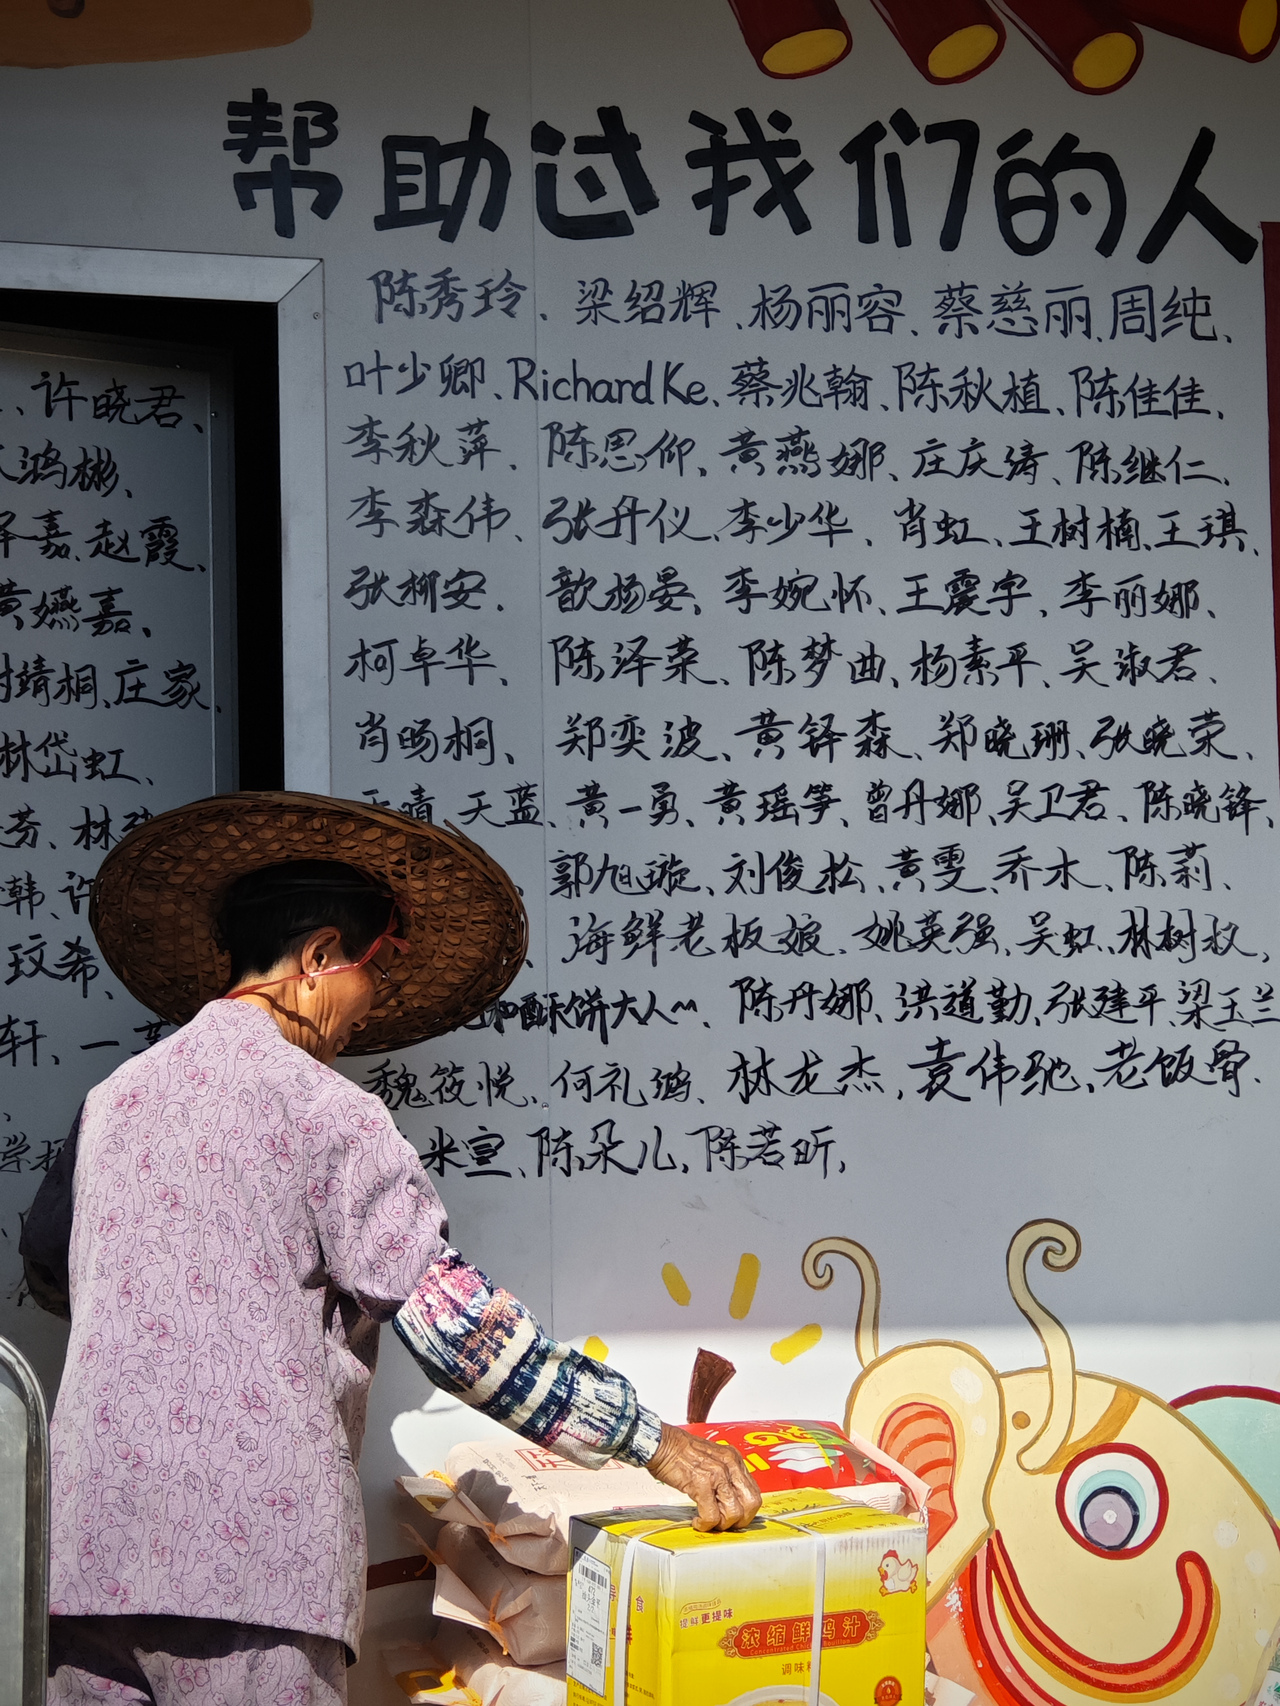 帮助过我们的人
陈秀玲、梁绍辉、杨丽容、蔡慈丽、周纯、
叶少卿、Richard Ke、蔡兆翰、陈秋植、陈佳佳、
李秋萍、陈思仰、黄燕娜、庄庆涛、陈继仁、
李森伟、张丹仪、李少华、肖虹、王树楠、王琪、
张柳安、歆杨晏、李婉怀、王震宇、李丽娜、
柯卓华、陈泽荣、陈梦曲、杨素平、吴淑君、
肖旸桐、郑奕波、黄铎森、郑晓珊、张晓荣、
晴 天蓝、黄一勇、黄瑶笋、曾丹娜、吴卫君、陈晓锋、
郭旭璇、刘俊松、黄雯、乔木、陈莉、
海鲜老板娘、姚英强、吴虹、林树
和酥饼大人~、陈丹娜、洪道勤、张建平、梁玉兰
魏筱悦、何礼鸿、林龙杰、袁伟驰、老饭骨、
米宣、陈朵儿、陈若昕,
、许晓君、
鸿彬、
嘉、赵霞、
黄嬿嘉、
靖桐、庄家
林岱虹、
芬、林
韩、许
玟希、
轩、一
学
提鲜更提味
浓缩鲜鸡汁
Concentrated Chicken Bouillon
调味料